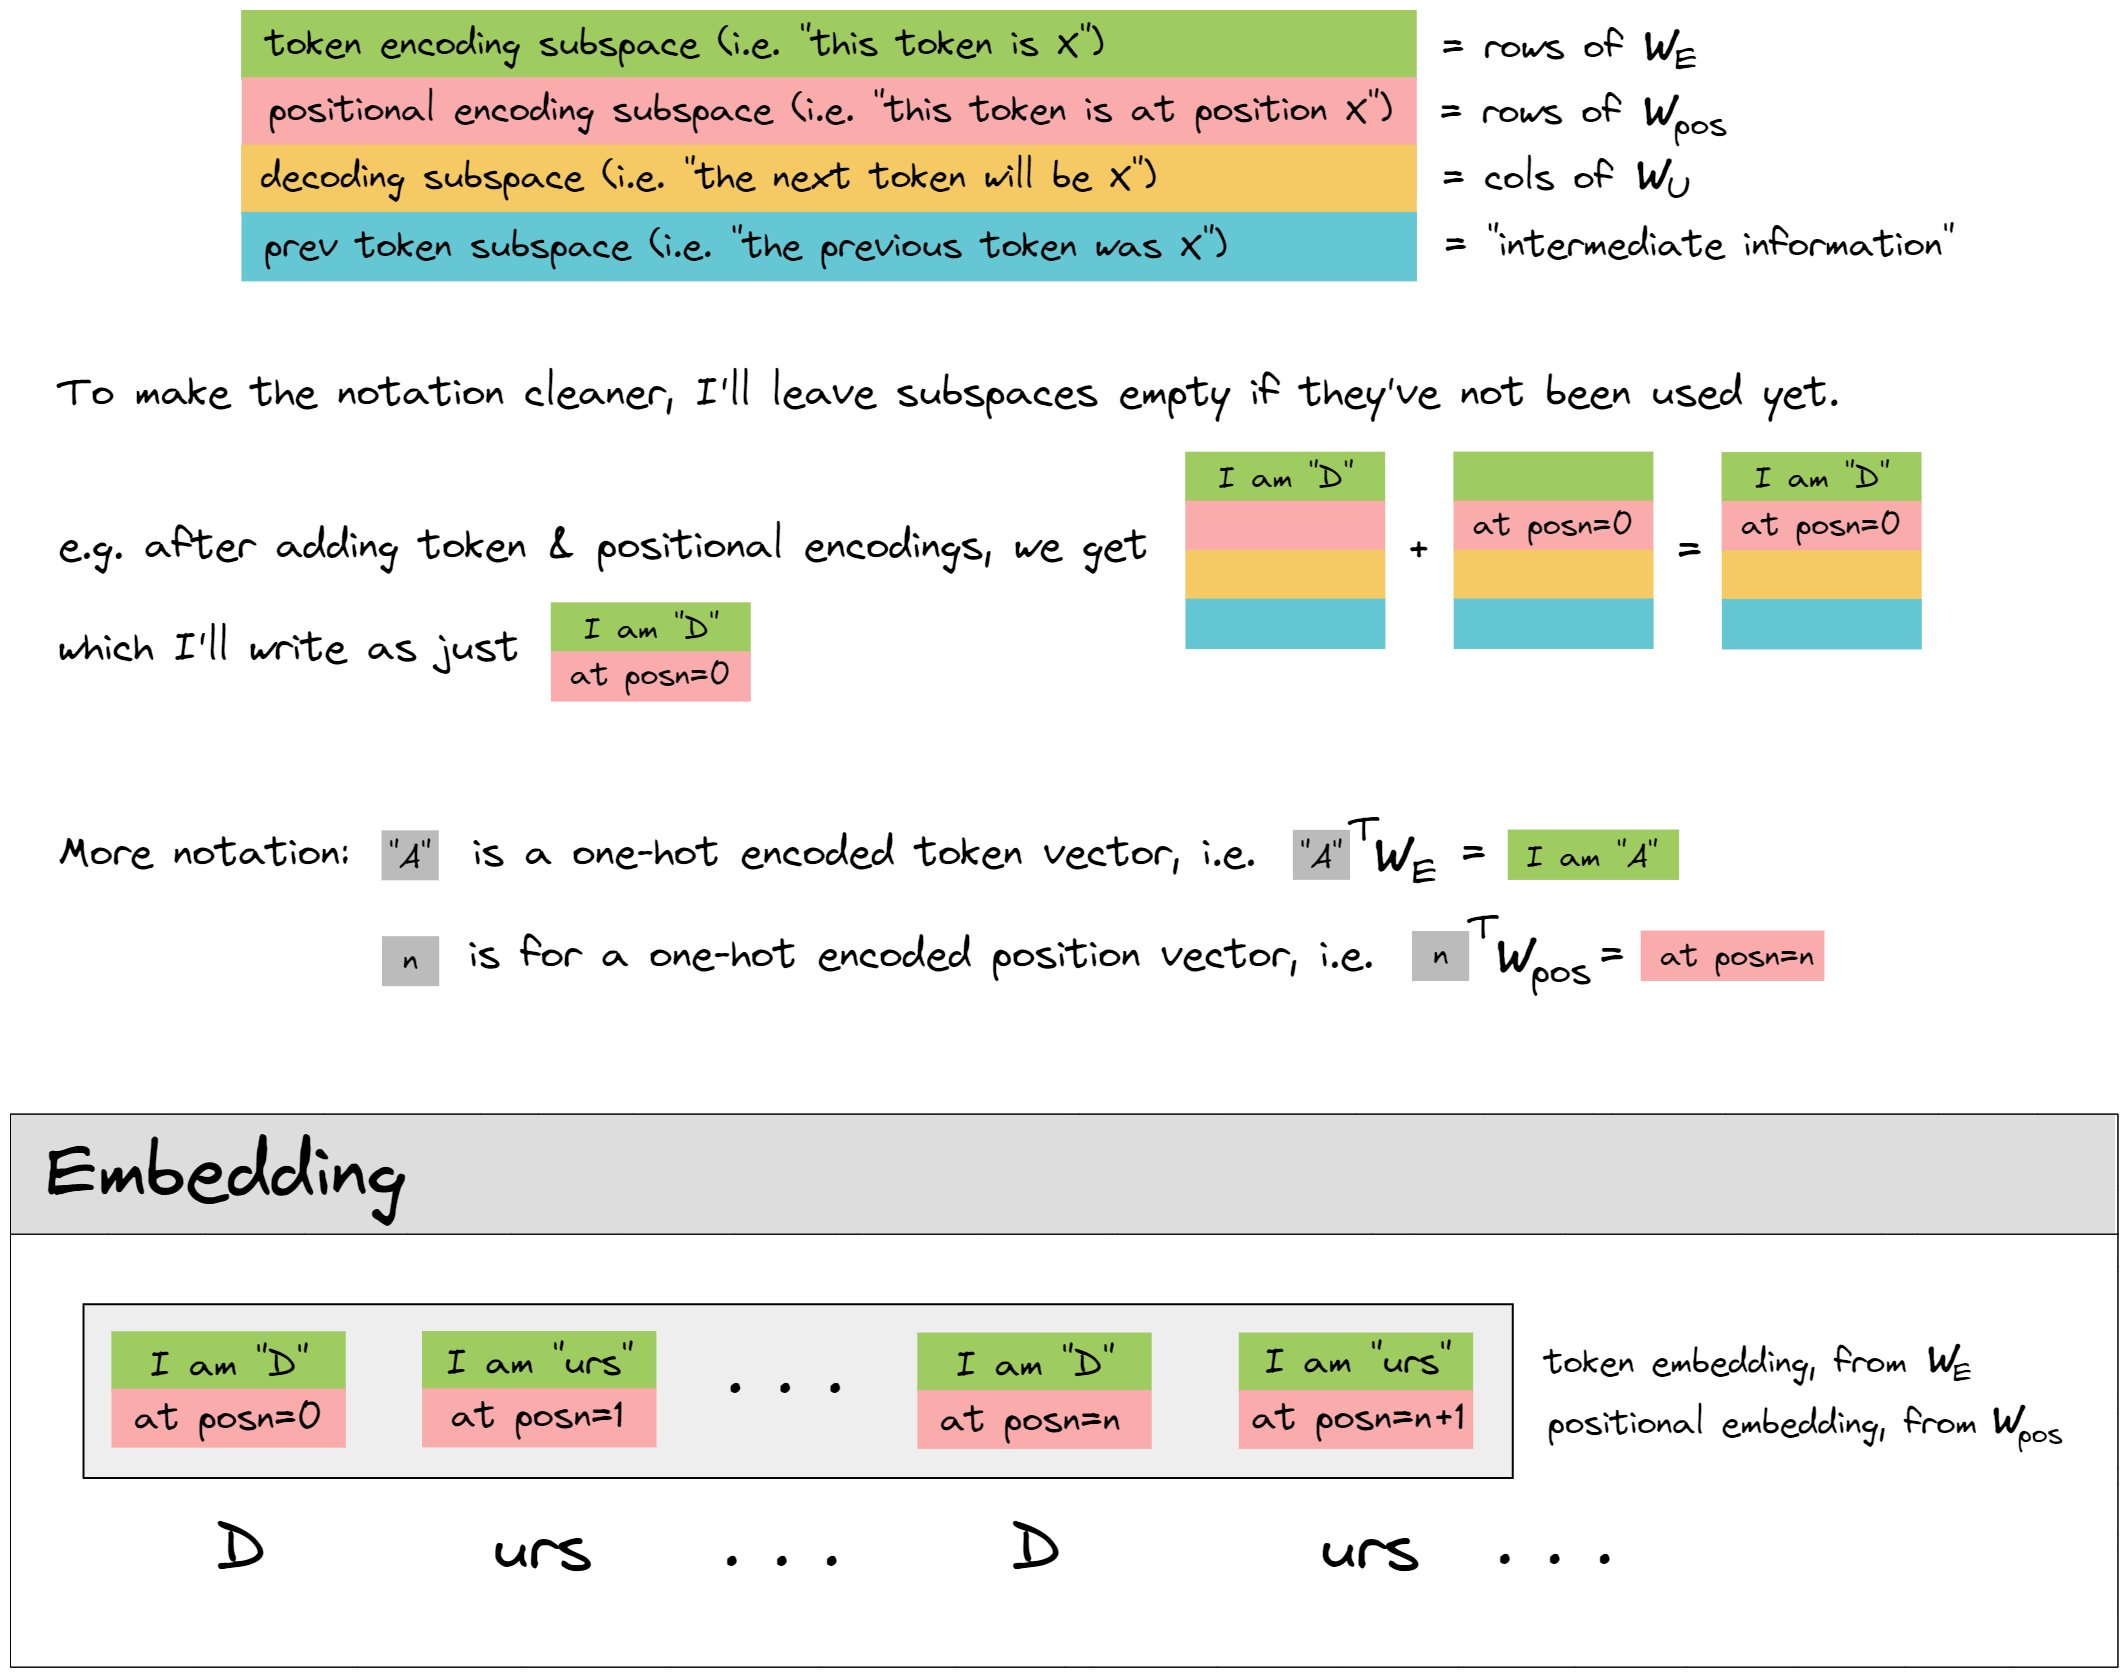 token encoding subspace (i.e. "this token is X") = rows of W_E
positional encoding subspace (i.e. "this token is at position X") = rows of W_pos
decoding subspace (i.e. "the next token will be X") = cols of W_U
prev token subspace (i.e. "the previous token was X") = "intermediate information"
To make the notation cleaner, I'll leave subspaces empty if they've not been used yet.
I am "D" I am "D"
at posn=0 at posn=0
e.g. after adding token & positional encodings, we get + =
which I'll write as just
I am "D"
at posn=0
More notation: "A" is a one-hot encoded token vector, i.e. "A"^T W_E = I am "A"
n is for a one-hot encoded position vector, i.e. n^T W_pos = at posn=n
Embedding
I am "D" I am "urs" ... I am "D" I am "urs" token embedding, from W_E
at posn=0 at posn=1 at posn=n at posn=n+1 positional embedding, from W_pos
D urs ... D urs ...